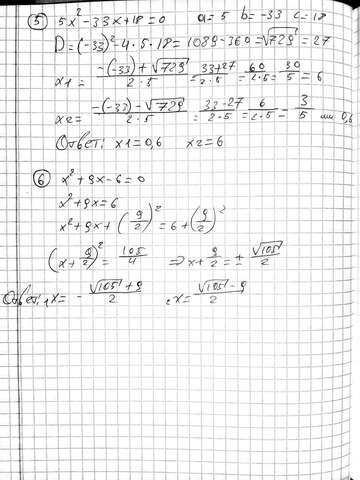 ⑤ 5x² - 33x + 18 = 0 a = 5 b = -33 c = 18
D = (-33)² - 4 · 5 · 18 = 1089 - 360 = √729 = 27
x1 = (-(-33) + √729) / (2 · 5) = (33 + 27) / (2 · 5) = 60 / (2 · 5) = 30 / 5 = 6
x2 = (-(-33) - √729) / (2 · 5) = (33 - 27) / (2 · 5) = 6 / (2 · 5) = 3 / 5 или 0,6
Ответ: x1 = 0,6 x2 = 6
⑥ x² + 9x - 6 = 0
x² + 9x = 6
x² + 9x + (9/2)² = 6 + (9/2)²
(x + 9/2)² = 105/4 ⇒ x + 9/2 = ± √105/2
Ответ: 1x = - (√105 + 9) / 2 2x = (√105 - 9) / 2